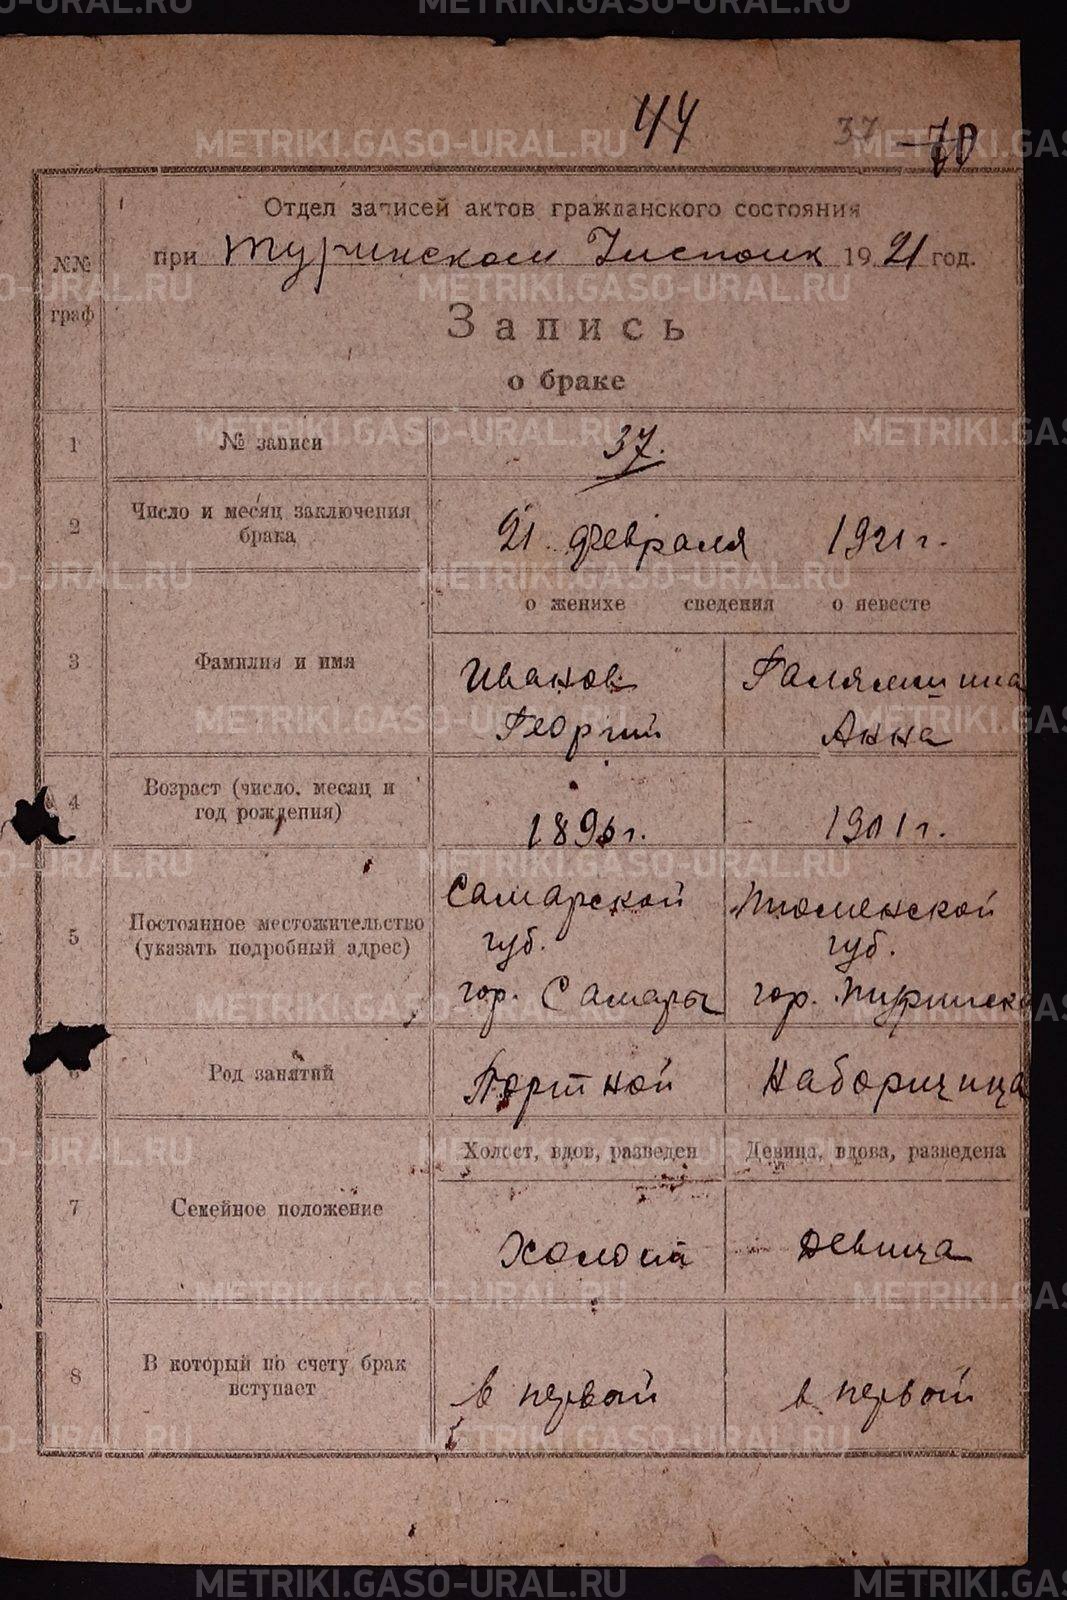 44 37 70
Отдел записей актов гражданского состояния
при Туринском Исполк 1921 год.
№№ граф
Запись
о браке
1 № записи 37.
2 Число и месяц заключения брака 21 февраля 1921 г.
о женихе сведения о невесте
3 Фамилия и имя Иванов Галямшина
Георгий Анна
4 Возраст (число, месяц и год рождения) 1896 г. 1901 г.
5 Постоянное местожительство (указать подробный адрес) Самарской Тюменской
губ. губ.
гор. Самары гор. Туринска
6 Род занятий Портной Наборщица
Холост, вдов, разведен Девица, вдова, разведена
7 Семейное положение Холост девица
8 В который по счету брак вступает в первой в первой
METRIKI.GASO-URAL.RU